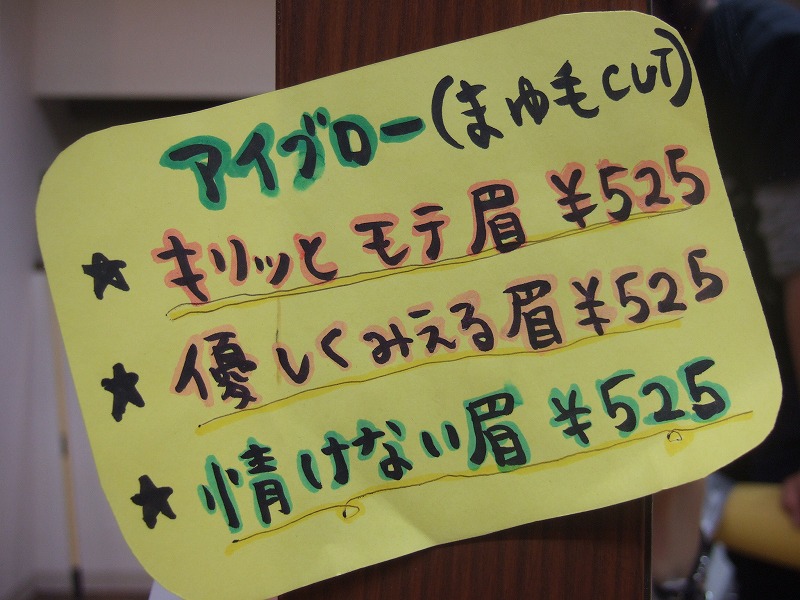 アイブロー(まゆ毛CUT)
★ キリッと モテ眉 ¥525
★ 優しくみえる眉 ¥525
★ 情けない眉 ¥525